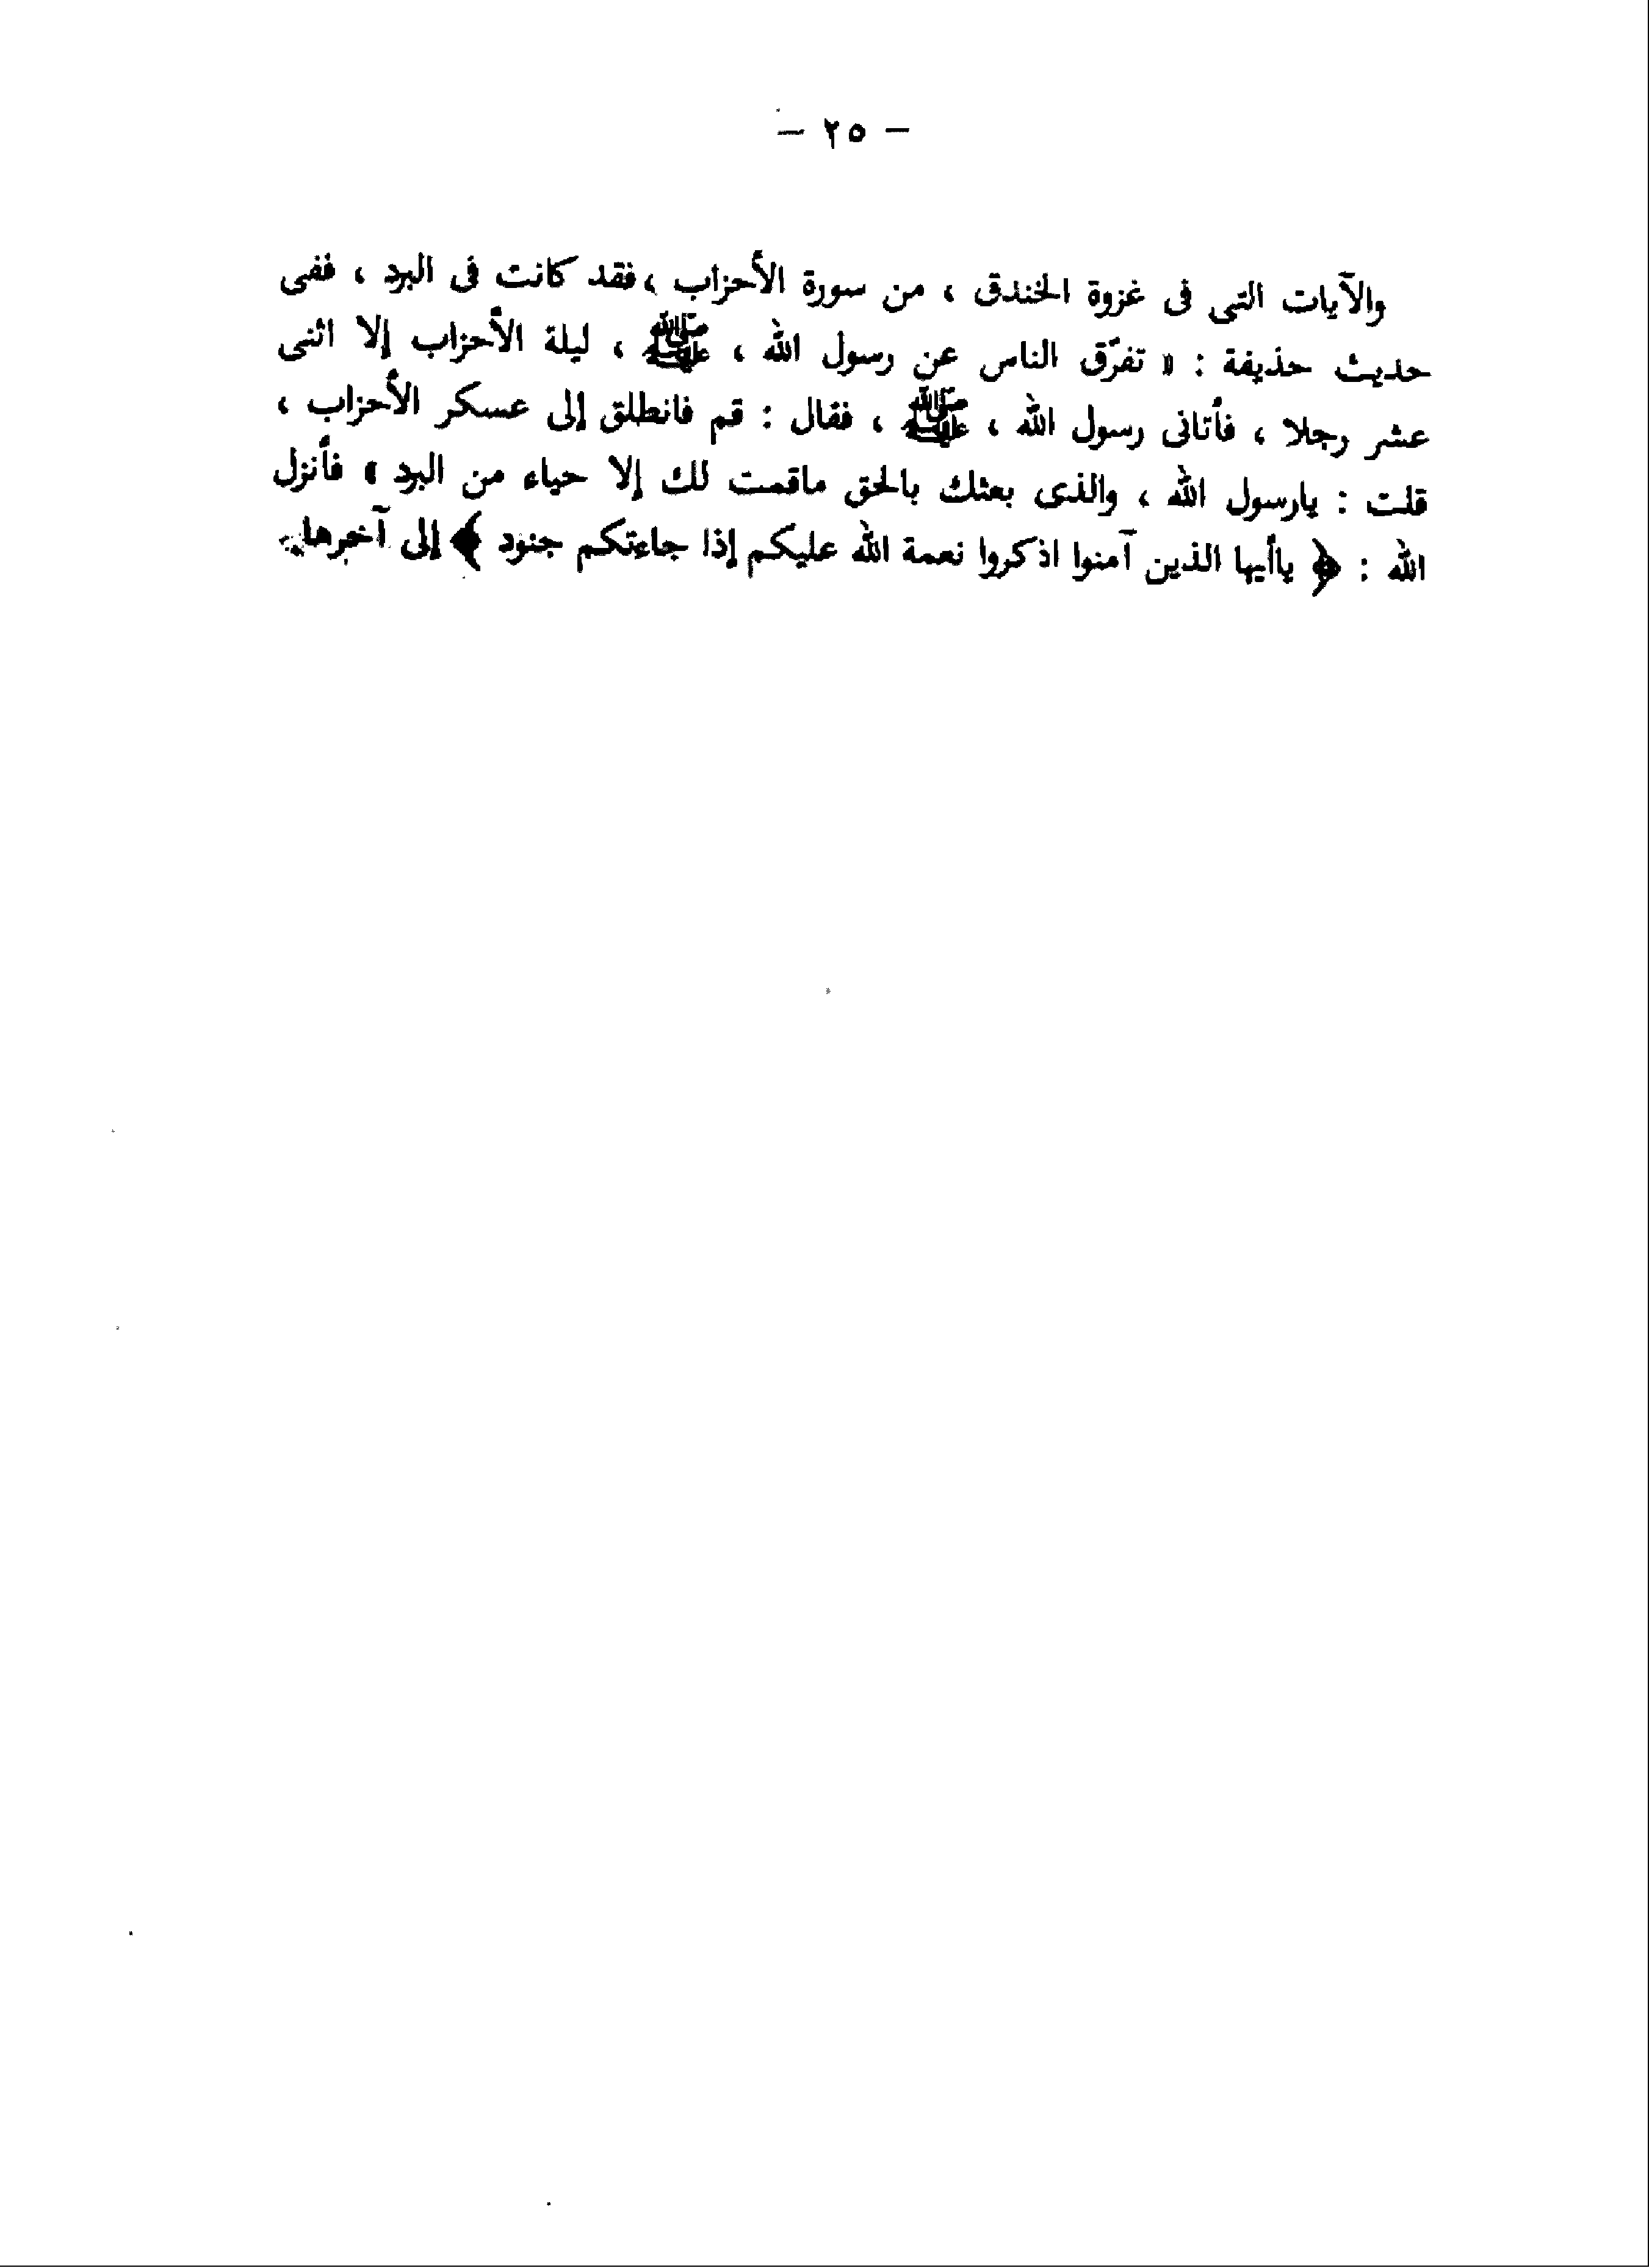 — ٢٥ —
والآيات التى فى غزوة الخندق ، من سورة الأحزاب ، فقد كانت فى البرد ، ففى
حديث حذيفة : « تفرّق الناس عن رسول الله ، ﷺ ، ليلة الأحزاب إلا اثنى
عشر رجلا ، فأتانى رسول الله ، ﷺ ، فقال : قم فانطلق إلى عسكر الأحزاب ،
قلت : يارسول الله ، والذى بعثك بالحق ماقمت لك إلا حياء من البرد » فأنزل
الله : ﴿ ياأيها الذين آمنوا اذكروا نعمة الله عليكم إذا جاءتكم جنود ﴾ إلى آخرها .